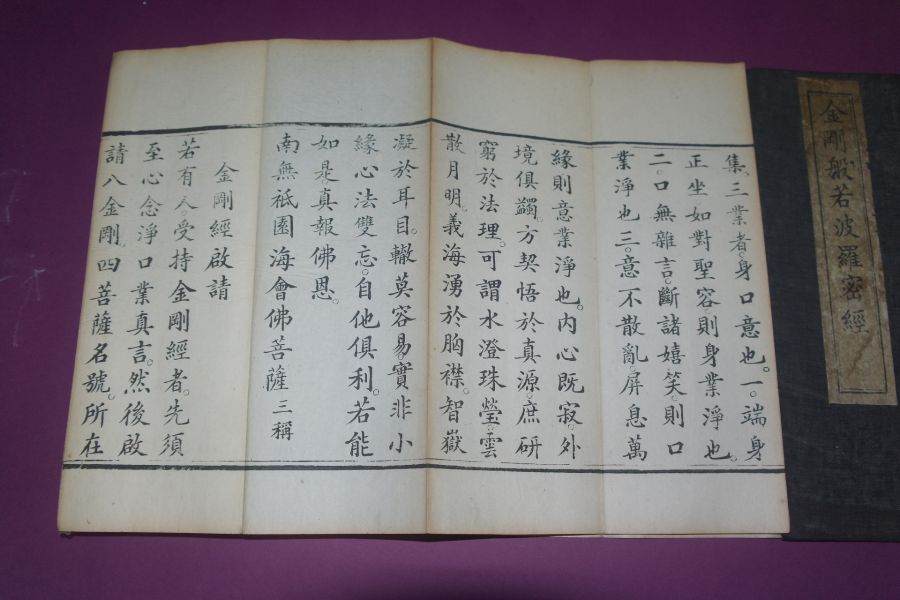 金剛般若波羅密經
集。三業者。身口意也。一。端身
正坐。如對聖容。則身業淨也。
二。口無雜言。斷諸嬉笑。則口
業淨也。三。意不散亂。屏息萬
緣。則意業淨也。內心既寂。外
境俱蠲。方契悟於真源。庶研
窮於法理。可謂水澄珠瑩。雲
散月明。義海湧於胸襟。智嶽
凝於耳目。輙莫容易。實非小
緣。心法雙忘。自他俱利。若能
如是。真報佛恩。
南無祇園海會佛菩薩三稱
金剛經啟請
若有人。受持金剛經者。先須
至心念淨口業真言。然後啟
請八金剛。四菩薩名號。所在